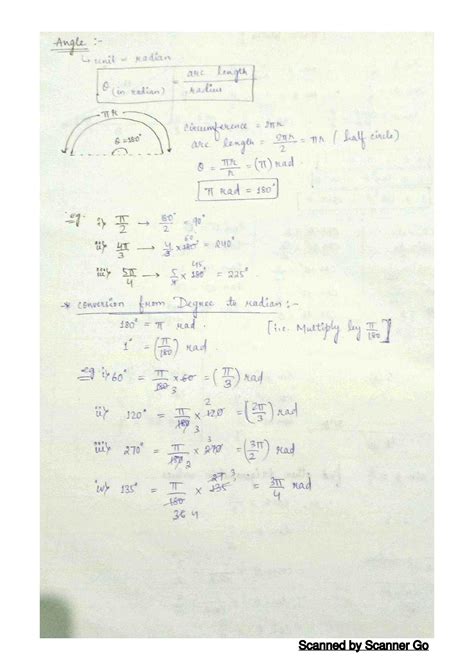 Angle :-
↳ unit - radian
θ (in radian) = arc length / radius
πR
θ = 180°
circumference = 2πr
arc length = 2πr/2 = πr (half circle)
θ = πr/r = (π) rad.
π rad = 180°
eg. i) π/2 → 180°/2 = 90°
ii) 4π/3 → 4/3 × 180° 60 = 240°
iii) 5π/4 → 5/4 × 180° 45 = 225°
* conversion from Degree to radian :-
180° = π rad. [i.e. Multiply by π/180]
1° = (π/180) rad.
eg. i) 60° = π/180 3 × 60 = (π/3) rad
ii) 120° = π/180 3 × 120 2 = (2π/3) rad
iii) 270° = π/180 2 × 270 3 = (3π/2) rad
iv) 135° = π/180 36 4 × 135 27 3 = 3π/4 rad
Scanned by Scanner Go